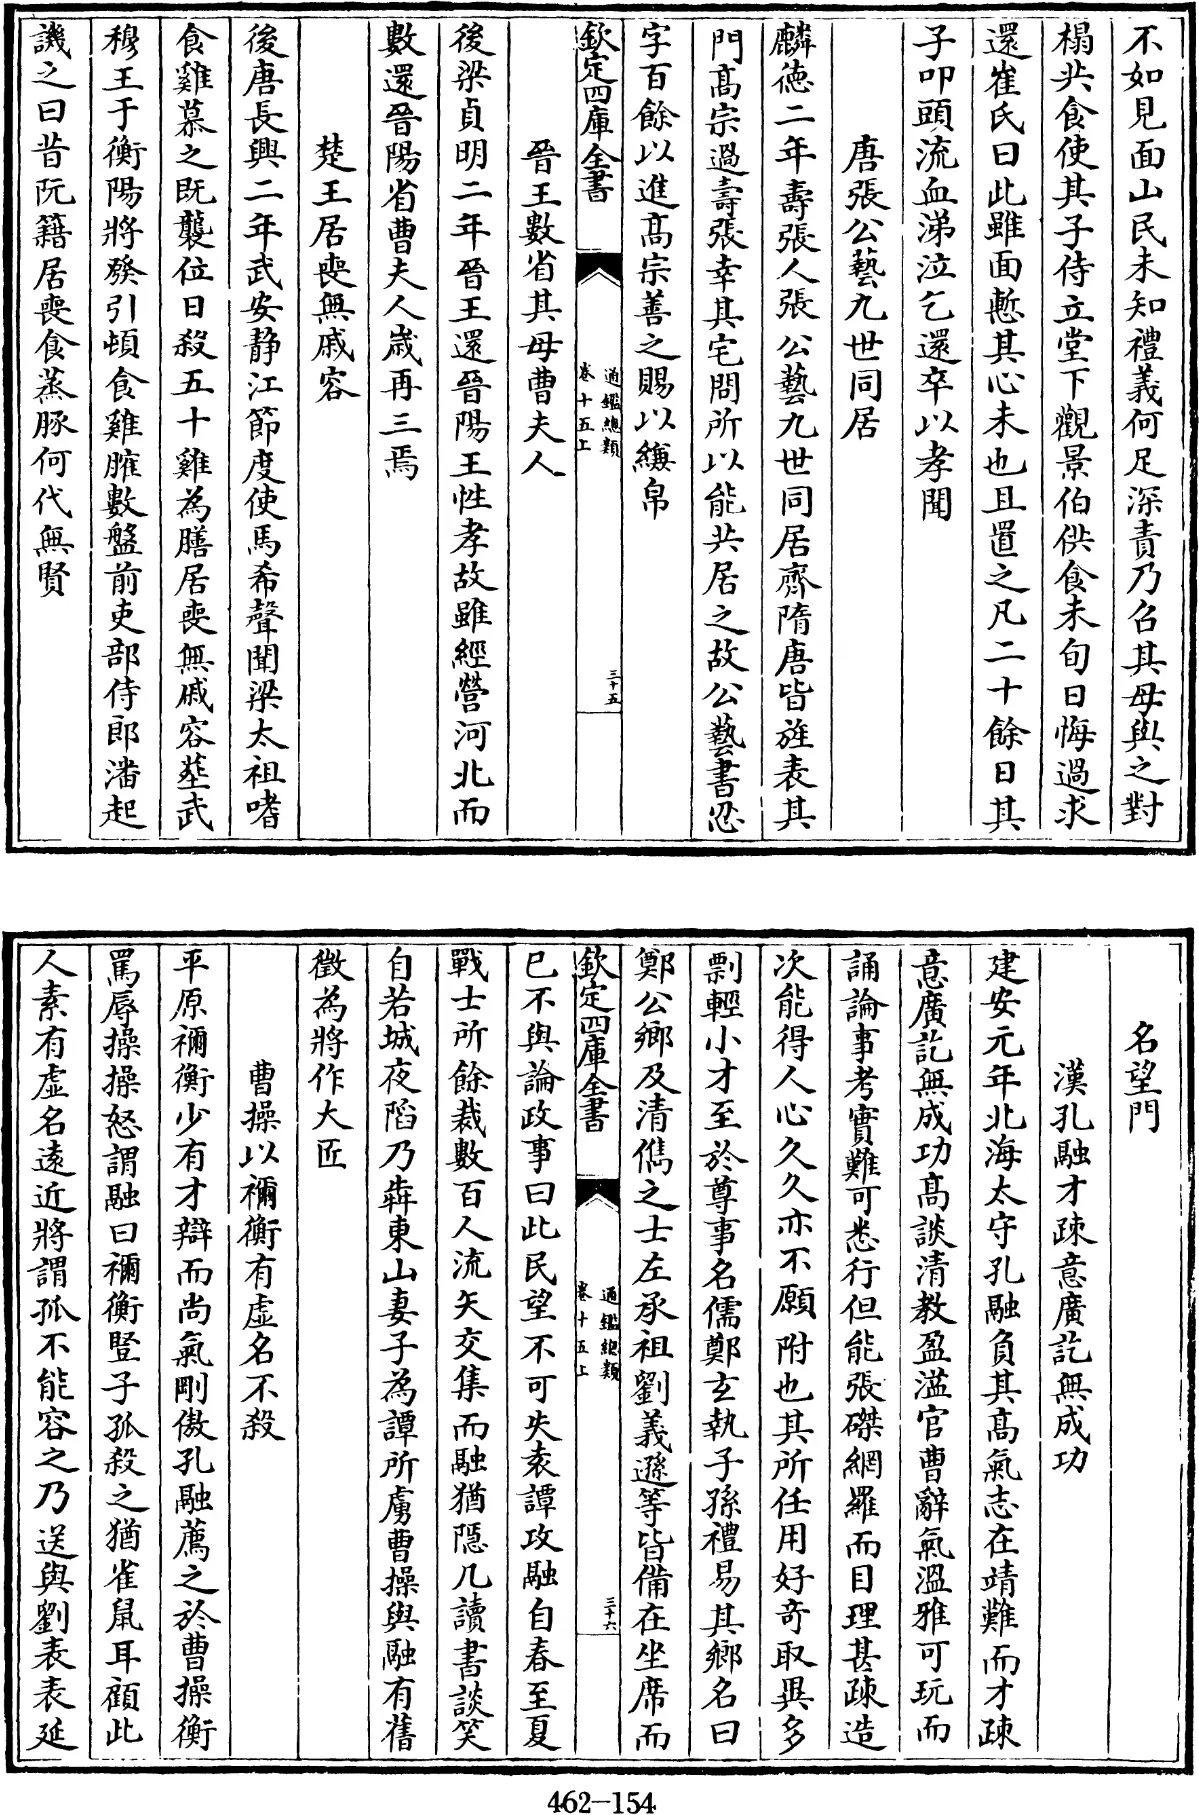 不如見面山民未知禮義何足深責乃召其母與之對
榻共食使其子侍立堂下觀景伯供食未旬日悔過求
還崔氏曰此雖面慙其心未也且置之凡二十餘日其
子叩頭流血涕泣乞還卒以孝聞
唐張公藝九世同居
麟德二年壽張人張公藝九世同居齊隋唐皆旌表其
門高宗過壽張幸其宅問所以能共居之故公藝書忍
字百餘以進高宗善之賜以縑帛
欽定四庫全書
通鑑總類
卷十五上
三十五
晉王數省其母曹夫人
後梁貞明二年晉王還晉陽王性孝故雖經營河北而
數還晉陽省曹夫人歲再三焉
楚王居喪無戚容
後唐長興二年武安靜江節度使馬希聲聞梁太祖嗜
食雞慕之既襲位日殺五十雞為膳居喪無戚容葬武
穆王于衡陽將發引頓食雞臛數盤前吏部侍郎潘起
譏之曰昔阮籍居喪食蒸豚何代無賢
名望門
漢孔融才疎意廣訖無成功
建安元年北海太守孔融負其高氣志在靖難而才疎
意廣訖無成功高談清教盈溢官曹辭氣溫雅可玩而
誦論事考實難可悉行但能張磔網羅而目理甚疎造
次能得人心久久亦不願附也其所任用好奇取異多
剽輕小才至於尊事名儒鄭玄執子孫禮易其鄉名曰
鄭公鄉及清儁之士左承祖劉義遜等皆備在坐席而
欽定四庫全書
通鑑總類
卷十五上
三十六
已不與論政事曰此民望不可失袁譚攻融自春至夏
戰士所餘裁數百人流矢交集而融猶隱几讀書談笑
自若城夜陷乃犇東山妻子為譚所虜曹操與融有舊
徵為將作大匠
曹操以禰衡有虛名不殺
平原禰衡少有才辯而尚氣剛傲孔融薦之於曹操衡
罵辱操操怒謂融曰禰衡豎子孤殺之猶雀鼠耳顧此
人素有虛名遠近將謂孤不能容之乃送與劉表表延
462-154